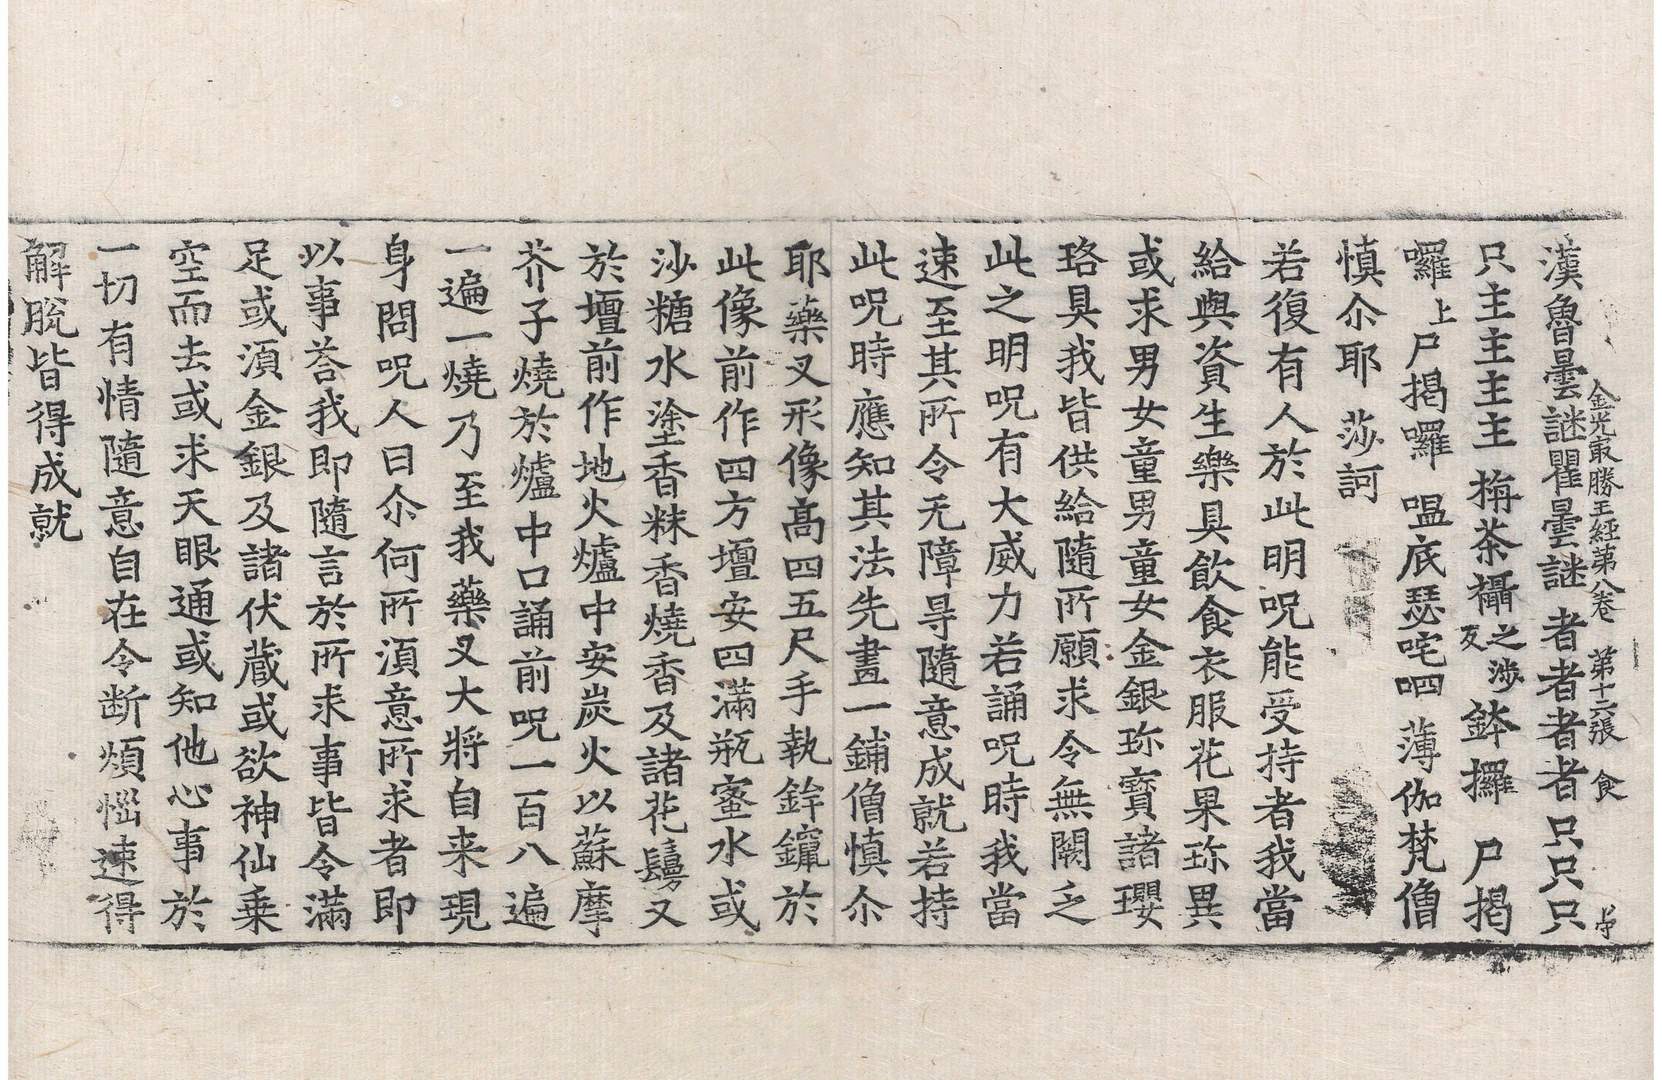 金光㝡勝王經第八卷　第十六張　食
漢魯曇謎瞿曇謎　者者者者　只只只
只主主主主　栴茶攝之涉反鉢攞　尸揭
囉上尸揭囉　嗢底瑟咤呬　薄伽梵僧
慎尒耶　莎訶
若復有人於此明呪能受持者我當
給與資生樂具飲食衣服花果珎異
或求男女童男童女金銀珎寶諸瓔
珞具我皆供給隨所願求令無闕乏
此之明呪有大威力若誦呪時我當
速至其所令无障㝵隨意成就若持
此呪時應知其法先畫一鋪僧慎尒
耶藥叉形像高四五尺手執鉾鑹於
此像前作四方壇安四滿瓶蜜水或
沙糖水塗香粖香燒香及諸花鬘又
於壇前作地火爐中安炭火以蘇摩
芥子燒於爐中口誦前呪一百八遍
一遍一燒乃至我藥叉大將自来現
身問呪人曰尒何所湏意所求者即
以事荅我即隨言於所求事皆令滿
足或湏金銀及諸伏藏或欲神仙乗
空而去或求天眼通或知他心事於
一切有情隨意自在令断煩惱速得
解脫皆得成就